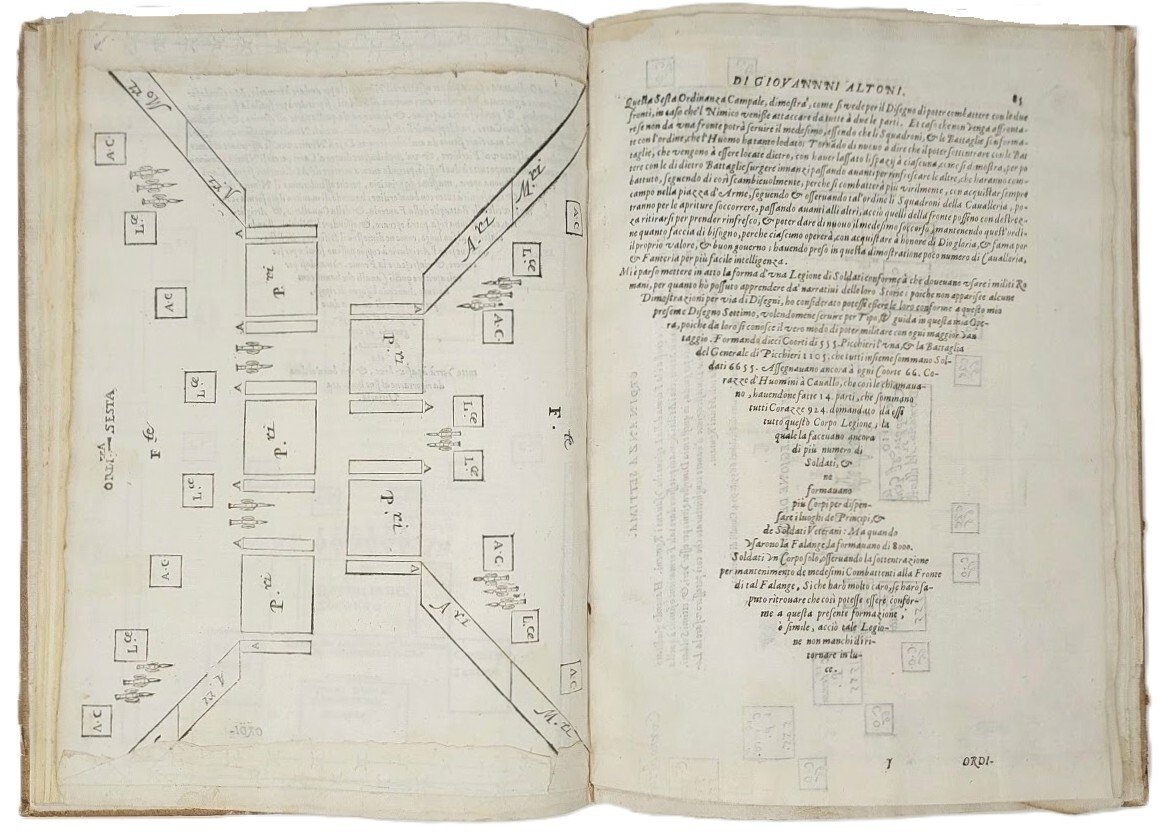 ORDI.ZZA SESTA
F.te
F.te
Mo ri
A. ri
A.C
L.ce
A.C
L.ce
L.ce
A.C
L.ce
A.C
A
P.ri
A
A
P.ri
A
A
P.ri
A
A. ri
A
P.ri
A
A
P.ri
A
A. ri
M. ri
A.C
L.ce
A.C
L.ce
L.ce
A.C
L.ce
A.C
A. ri
M. ri
DI GIOVANNNI ALTONI.
85
Questa Sesta Ordinanza Campale, dimostra, come si vede per il Disegno di poter combattere con le due
fronti, in caso che'l Nimico venisse attaccare da tutte à due le parti. Et caso che non venga affronta-
re se non da vna fronte potrà seruire il medesimo, essendo che li Squadroni, & le Battaglie si informa-
te con l'ordine, che l'Huomo ha tanto lodato; Tornado di nuouo à dire che il poter sottintrare con le Bat
taglie, che vengono à essere locate dietro, con hauer lassato li spazÿ à ciascuna, come si dimostra, per po
tere con le di dietro Battaglie surgere innanzi passando auanti per rinfrescare le altre, che haranno com-
battuto, seguendo di così scambieuolmente, perche si combatterà più virilmente, con acquistar sempre
campo nella piazza d'Arme, seguendo & osseruando tal'ordine li Squadroni della Caualleria, po-
tranno per le apriture soccorrere, passando auanti alli altri, acciò quelli della fronte possino con destrez-
za ritirarsi per prender rinfresco, & poter dare di nuouo il medesimo soccorso, mantenendo quest'ordi-
ne quanto faccia di bisogno, perche ciascuno opererà, con acquistare à honore di Dio gloria, & fama per
il proprio valore, & buon gouerno: hauendo preso in questa dimostratione poco numero di Caualleria,
& Fanteria per più facile intelligenza.
Mi è parso mettere in atto la forma d'vna Legione di Soldati conforme à che doueuano vsare i militi Ro
mani, per quanto hò possuto apprendere da' narratiui delle loro Storie: poiche non apparisce alcune
Dimostrazioni per via di Disegni, ho considerato potesse essere le loro conforme a questo mio
presente Disegno Settimo, volendomene seruire per Tipo, & guida in questa mia Ope-
ra, poiche da loro si conosce il vero modo di poter militare con ogni maggior van
taggio. Formando dieci Coorti di 555. Picchieri l'vna, & la Battaglia
del Generale di Picchieri 1105. che tutti insieme sommano Sol-
dati 6655. Assegnauano ancora à ogni Coorte 66. Co-
razze d'Huomini à Cauallo, che così le chiamaua-
no, hauendone fatte 14. parti, che sommano
tutti Corazze 924. domandato da essi
tutto questo Corpo Legione, la
quale la faceuano ancora
di più numero di
Soldati, &
ne
formauano
più Corpi per dispen-
sare i luoghi de' Principi, &
de Soldati Veterani: Ma quando
vsarono la Falange, la formauano di 8000.
Soldati vn Corpo solo, osseruando la sottentrazione
per mantenimento de medesimi Combattenti alla Fronte
di tal Falange, Si che harò molto caro, se harò sa-
puto ritrouare che così potesse essere confor-
me a questa presente formazione,
ò simile, acciò tale Legio-
ne non manchi di ri-
tornare in lu-
ce.
I
ORDI-